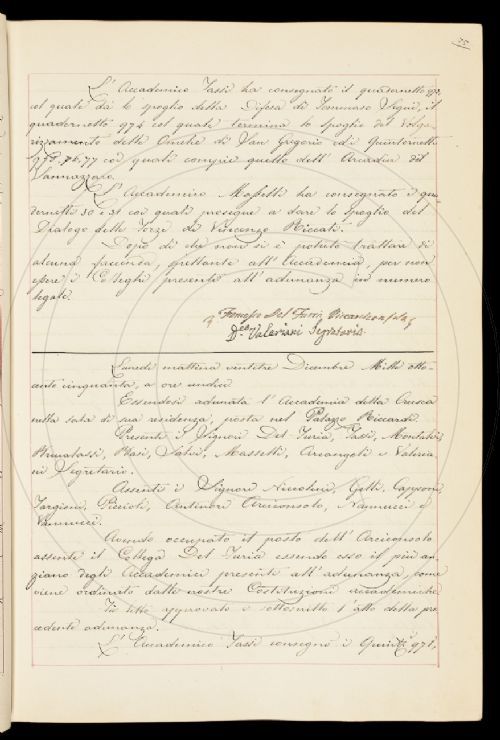 75
L'Accademico Tassi ha consegnato il quadernetto 973
col quale dà lo spoglio della Difesa di Tommaso Segni, il
quadernetto 974 col quale termina lo spoglio del Volga-
rizzamento delle Omelie di San Grigorio ed i Quinternetti
975. 76. 77 coi quali compie quello dell'Arcadia del
Sannazzaro.
L'Accademico Masselli ha consegnato i qua-
dernetti 30 e 31 coi quali prosegue a dare lo spoglio del
Dialogo delle Forze di Vincenzo Riccati.
Dopo di che non si è potuto trattare di
alcuna faccenda, spettante all'Accademia, per non
essere i Colleghi presenti all'adunanza in numero
legale.
Francesco Del Furia
Valeriani Segretario
Lunedì mattina ventitre Dicembre Mille otto-
cento cinquanta, a ore undici
Essendosi adunata l'Accademia della Crusca
nella sala di sua residenza, posta nel Palazzo Riccardi.
Presenti I Signori Del Furia, Tassi, Montalvi,
Brucalassi, Nesi, Salvi, Masselli, Arcangeli e Valeria-
ni Segretario.
Assenti i Signori Niccolini, Gelli, Capponi,
Targioni, Piccioli, Cantieri Arciconsolo, Nannucci e
Vannucci.
Avendo occupato il posto dell'Arciconsolo
assente il Collega Del Furia essendo esso il più an-
ziano degli Accademici presenti all'adunanza, come
viene ordinato dalle nostre Costituzioni accademiche
Fu letto approvato e sottoscritto l'atto della pre-
cedente adunanza.
L'Accademico Tassi consegnò i Quinti 971,